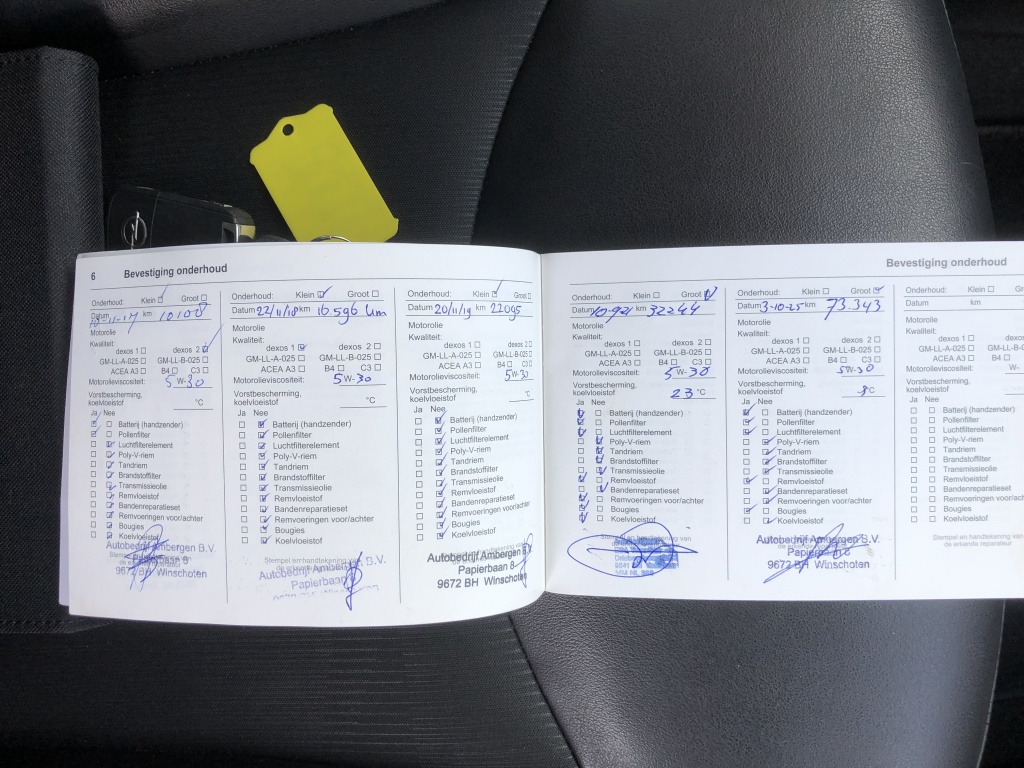 6 Bevestiging onderhoud
Onderhoud: Klein Groot
Datum km 10108
Motorolie
Kwaliteit:
dexos 1 dexos 2
GM-LL-A-025 GM-LL-B-025
ACEA A3 B4 C3
Motorolieviscositeit: 5W-30
Vorstbescherming,
koelvloeistof °C
Ja Nee
Batterij (handzender)
Pollenfilter
Luchtfilterelement
Poly-V-riem
Tandriem
Brandstoffilter
Transmissieolie
Remvloeistof
Bandenreparatieset
Remvoeringen voor/achter
Bougies
Koelvloeistof
Autobedrijf Ambergen B.V.
Papierbaan 8
9672 BH Winschoten
Onderhoud: Klein Groot
Datum 22/11/18 km 16596 km
Motorolie
Kwaliteit:
dexos 1 dexos 2
GM-LL-A-025 GM-LL-B-025
ACEA A3 B4 C3
Motorolieviscositeit: 5W-30
Vorstbescherming,
koelvloeistof °C
Ja Nee
Batterij (handzender)
Pollenfilter
Luchtfilterelement
Poly-V-riem
Tandriem
Brandstoffilter
Transmissieolie
Remvloeistof
Bandenreparatieset
Remvoeringen voor/achter
Bougies
Koelvloeistof
Stempel en handtekening van
de erkende reparateur
Autobedrijf Ambergen B.V.
Papierbaan 8
Onderhoud: Klein Groot
Datum 20/11/19 km 22095
Motorolie
Kwaliteit:
dexos 1 dexos 2
GM-LL-A-025 GM-LL-B-025
ACEA A3 B4 C3
Motorolieviscositeit: 5W-30
Vorstbescherming,
koelvloeistof °C
Ja Nee
Batterij (handzender)
Pollenfilter
Luchtfilterelement
Poly-V-riem
Tandriem
Brandstoffilter
Transmissieolie
Remvloeistof
Bandenreparatieset
Remvoeringen voor/achter
Bougies
Koelvloeistof
Autobedrijf Ambergen B.V.
Papierbaan 8
9672 BH Winschoten
Bevestiging onderhoud
Onderhoud: Klein Groot
Datum km 32244
Motorolie
Kwaliteit:
dexos 1 dexos 2
GM-LL-A-025 GM-LL-B-025
ACEA A3 B4 C3
Motorolieviscositeit: 5W-30
Vorstbescherming,
koelvloeistof 23 °C
Ja Nee
Batterij (handzender)
Pollenfilter
Luchtfilterelement
Poly-V-riem
Tandriem
Brandstoffilter
Transmissieolie
Remvloeistof
Bandenreparatieset
Remvoeringen voor/achter
Bougies
Koelvloeistof
Stempel en handtekening van
Onderhoud: Klein Groot
Datum 3-10-25 km 73.343
Motorolie
Kwaliteit:
dexos 1 dexos 2
GM-LL-A-025 GM-LL-B-025
ACEA A3 B4 C3
Motorolieviscositeit: 5W-30
Vorstbescherming,
koelvloeistof °C
Ja Nee
Batterij (handzender)
Pollenfilter
Luchtfilterelement
Poly-V-riem
Tandriem
Brandstoffilter
Transmissieolie
Remvloeistof
Bandenreparatieset
Remvoeringen voor/achter
Bougies
Koelvloeistof
Autobedrijf Ambergen B.V.
Papierbaan 8
9672 BH Winschoten
Onderhoud: Klein Gro
Datum km
Motorolie
Kwaliteit:
dexos 1 de
GM-LL-A-025 GM-LL
ACEA A3 B4
Motorolieviscositeit: W-
Vorstbescherming,
koelvloeistof
Ja Nee
Batterij (handzender)
Pollenfilter
Luchtfilterelement
Poly-V-riem
Tandriem
Brandstoffilter
Transmissieolie
Remvloeistof
Bandenreparatieset
Remvoeringen voor/achter
Bougies
Koelvloeistof
Stempel en handtekening
de erkende reparateur